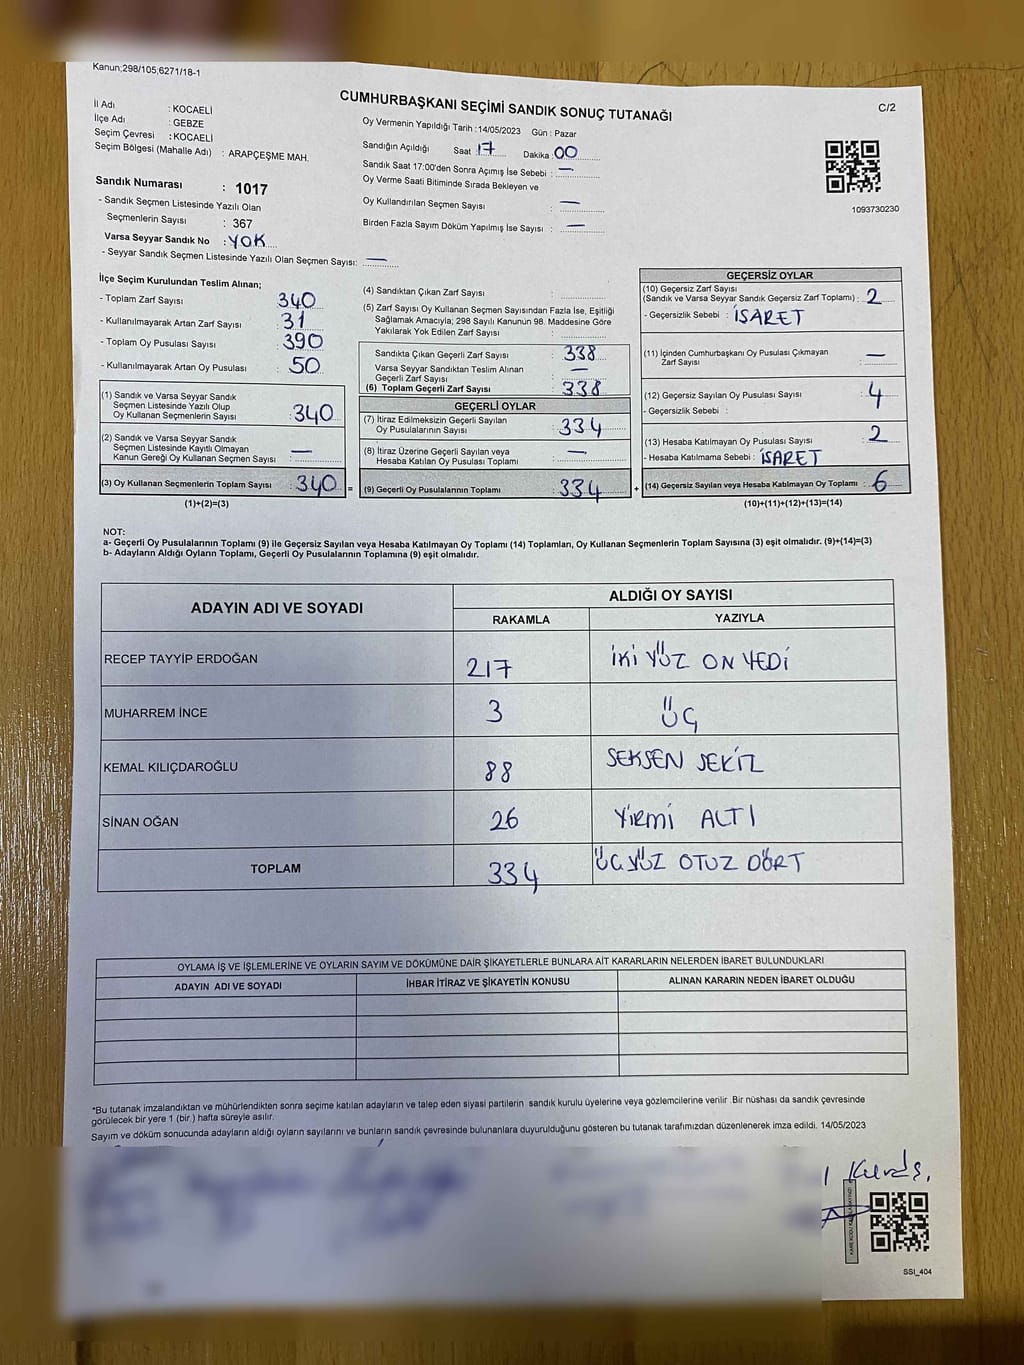 Kanun;298/105;6271/18-1
CUMHURBAŞKANI SEÇİMİ SANDIK SONUÇ TUTANAĞI
C/2
İl Adı : KOCAELİ
İlçe Adı : GEBZE
Seçim Çevresi : KOCAELİ
Seçim Bölgesi (Mahalle Adı) : ARAPÇEŞME MAH.
Sandık Numarası : 1017
- Sandık Seçmen Listesinde Yazılı Olan
Seçmenlerin Sayısı : 367
Varsa Seyyar Sandık No : YOK
- Seyyar Sandık Seçmen Listesinde Yazılı Olan Seçmen Sayısı: —
Oy Vermenin Yapıldığı Tarih :14/05/2023 Gün : Pazar
Sandığın Açıldığı Saat 17 Dakika 00
Sandık Saat 17:00'den Sonra Açımış İse Sebebi : —
Oy Verme Saati Bitiminde Sırada Bekleyen ve
Oy Kullandırılan Seçmen Sayısı : —
Birden Fazla Sayım Döküm Yapılmış İse Sayısı : —
1093730230
İlçe Seçim Kurulundan Teslim Alınan;
- Toplam Zarf Sayısı 340
- Kullanılmayarak Artan Zarf Sayısı : 31
- Toplam Oy Pusulası Sayısı : 390
- Kullanılmayarak Artan Oy Pusulası : 50
(1) Sandık ve Varsa Seyyar Sandık
Seçmen Listesinde Yazılı Olup
Oy Kullanan Seçmenlerin Sayısı : 340
(2) Sandık ve Varsa Seyyar Sandık
Seçmen Listesinde Kayıtlı Olmayan
Kanun Gereği Oy Kullanan Seçmen Sayısı : —
(3) Oy Kullanan Seçmenlerin Toplam Sayısı : 340 =
(1)+(2)=(3)
(4) Sandıktan Çıkan Zarf Sayısı :
(5) Zarf Sayısı Oy Kullanan Seçmen Sayısından Fazla İse, Eşitliği
Sağlamak Amacıyla; 298 Sayılı Kanunun 98. Maddesine Göre
Yakılarak Yok Edilen Zarf Sayısı :
Sandıkta Çıkan Geçerli Zarf Sayısı : 338
Varsa Seyyar Sandıktan Teslim Alınan
Geçerli Zarf Sayısı : —
(6) Toplam Geçerli Zarf Sayısı : 338
GEÇERLİ OYLAR
(7) İtiraz Edilmeksizin Geçerli Sayılan
Oy Pusulalarının Sayısı : 334
(8) İtiraz Üzerine Geçerli Sayılan veya
Hesaba Katılan Oy Pusulası Toplamı : —
(9) Geçerli Oy Pusulalarının Toplamı : 334 +
GEÇERSİZ OYLAR
(10) Geçersiz Zarf Sayısı
(Sandık ve Varsa Seyyar Sandık Geçersiz Zarf Toplamı) : 2
- Geçersizlik Sebebi : İSARET
(11) İçinden Cumhurbaşkanı Oy Pusulası Çıkmayan
Zarf Sayısı : —
(12) Geçersiz Sayılan Oy Pusulası Sayısı : 4
- Geçersizlik Sebebi :
(13) Hesaba Katılmayan Oy Pusulası Sayısı : 2
- Hesaba Katılmama Sebebi : İSARET
(14) Geçersiz Sayılan veya Hesaba Katılmayan Oy Toplamı : 6
(10)+(11)+(12)+(13)=(14)
NOT:
a- Geçerli Oy Pusulalarının Toplamı (9) ile Geçersiz Sayılan veya Hesaba Katılmayan Oy Toplamı (14) Toplamları, Oy Kullanan Seçmenlerin Toplam Sayısına (3) eşit olmalıdır. (9)+(14)=(3)
b- Adayların Aldığı Oyların Toplamı, Geçerli Oy Pusulalarının Toplamına (9) eşit olmalıdır.
ADAYIN ADI VE SOYADI ALDIĞI OY SAYISI
RAKAMLA YAZIYLA
RECEP TAYYİP ERDOĞAN 217 İKİ YÜZ ON YEDİ
MUHARREM İNCE 3 ÜÇ
KEMAL KILIÇDAROĞLU 88 SEKSEN SEKİZ
SİNAN OĞAN 26 YİRMİ ALTI
TOPLAM 334 ÜÇ YÜZ OTUZ DÖRT
OYLAMA İŞ VE İŞLEMLERİNE VE OYLARIN SAYIM VE DÖKÜMÜNE DAİR ŞİKAYETLERLE BUNLARA AİT KARARLARIN NELERDEN İBARET BULUNDUKLARI
ADAYIN ADI VE SOYADI İHBAR İTİRAZ VE ŞİKAYETİN KONUSU ALINAN KARARIN NEDEN İBARET OLDUĞU
*Bu tutanak imzalandıktan ve mühürlendikten sonra seçime katılan adayların ve talep eden siyasi partilerin sandık kurulu üyelerine veya gözlemcilerine verilir .Bir nüshası da sandık çevresinde
görülecek bir yere 1 (bir ) hafta süreyle asılır.
Sayım ve döküm sonucunda adayların aldığı oyların sayılarını ve bunların sandık çevresinde bulunanlara duyurulduğunu gösteren bu tutanak tarafımızdan düzenlenerek imza edildi. 14/05/2023
SSI_404